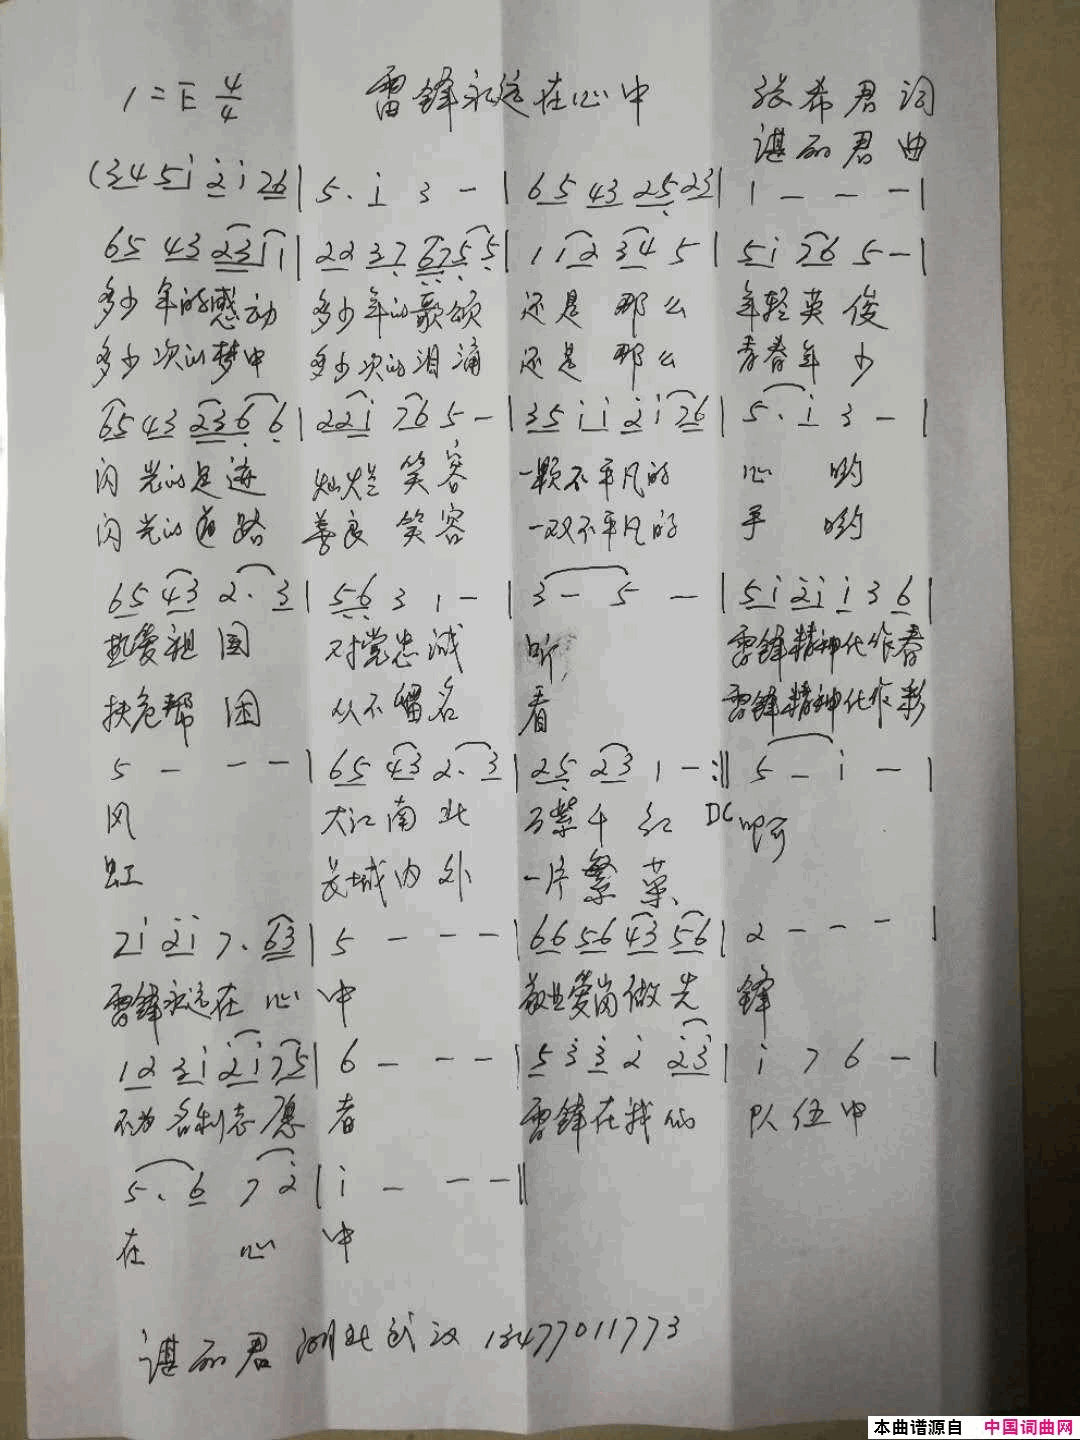 1=E 4/4 雷锋永远在心中 张希君词
谌丽君曲
(3 4 5 i 2 i 2 6 | 5. i 3 - | 6 5 4 3 2 5 2 3 | 1 - - - |
6 5 4 3 2 3 1 1 | 2 2 3 7 6 7 5 5 | 1 1 2 3 4 5 | 5 i 7 6 5 - |
多少年的感动 多少年的歌颂 还是那么 年轻英俊
多少次的梦中 多少次的泪涌 还是那么 青春年少
6 5 4 3 2 3 6 6 | 2 2 i 7 6 5 - | 3 5 i i 2 i 7 6 | 5. i 3 - |
闪光的足迹 灿烂笑容 一颗不平凡的 心哟
闪光的道路 善良笑容 一双不平凡的 手哟
6 5 4 3 2. 3 | 5 6 3 1 - | 3 - 5 - | 5 i 2 i i 3 6 |
热爱祖国 对党忠诚 听 雷锋精神化作春
扶危帮困 从不留名 看 雷锋精神化作彩
5 - - - | 6 5 4 3 2. 3 | 2 5 2 3 1 - :‖ 5 - i - |
风 大江南北 万紫千红 DC 啊
虹 长城内外 一片繁荣
7 i 2 i 7. 6 3 | 5 - - - | 6 6 5 6 4 3 5 6 | 2 - - - |
雷锋永远在心中 敬业爱岗做先锋
1 2 3 i 2 i 7 5 | 6 - - - | 5 3 3 2 2 3 | i 7 6 - |
不为名利志愿者 雷锋在我们 队伍中
5. 6 7 2 | i - - - ‖
在心中
谌丽君 湖北武汉 13477011773
本曲谱源自 中国词曲网